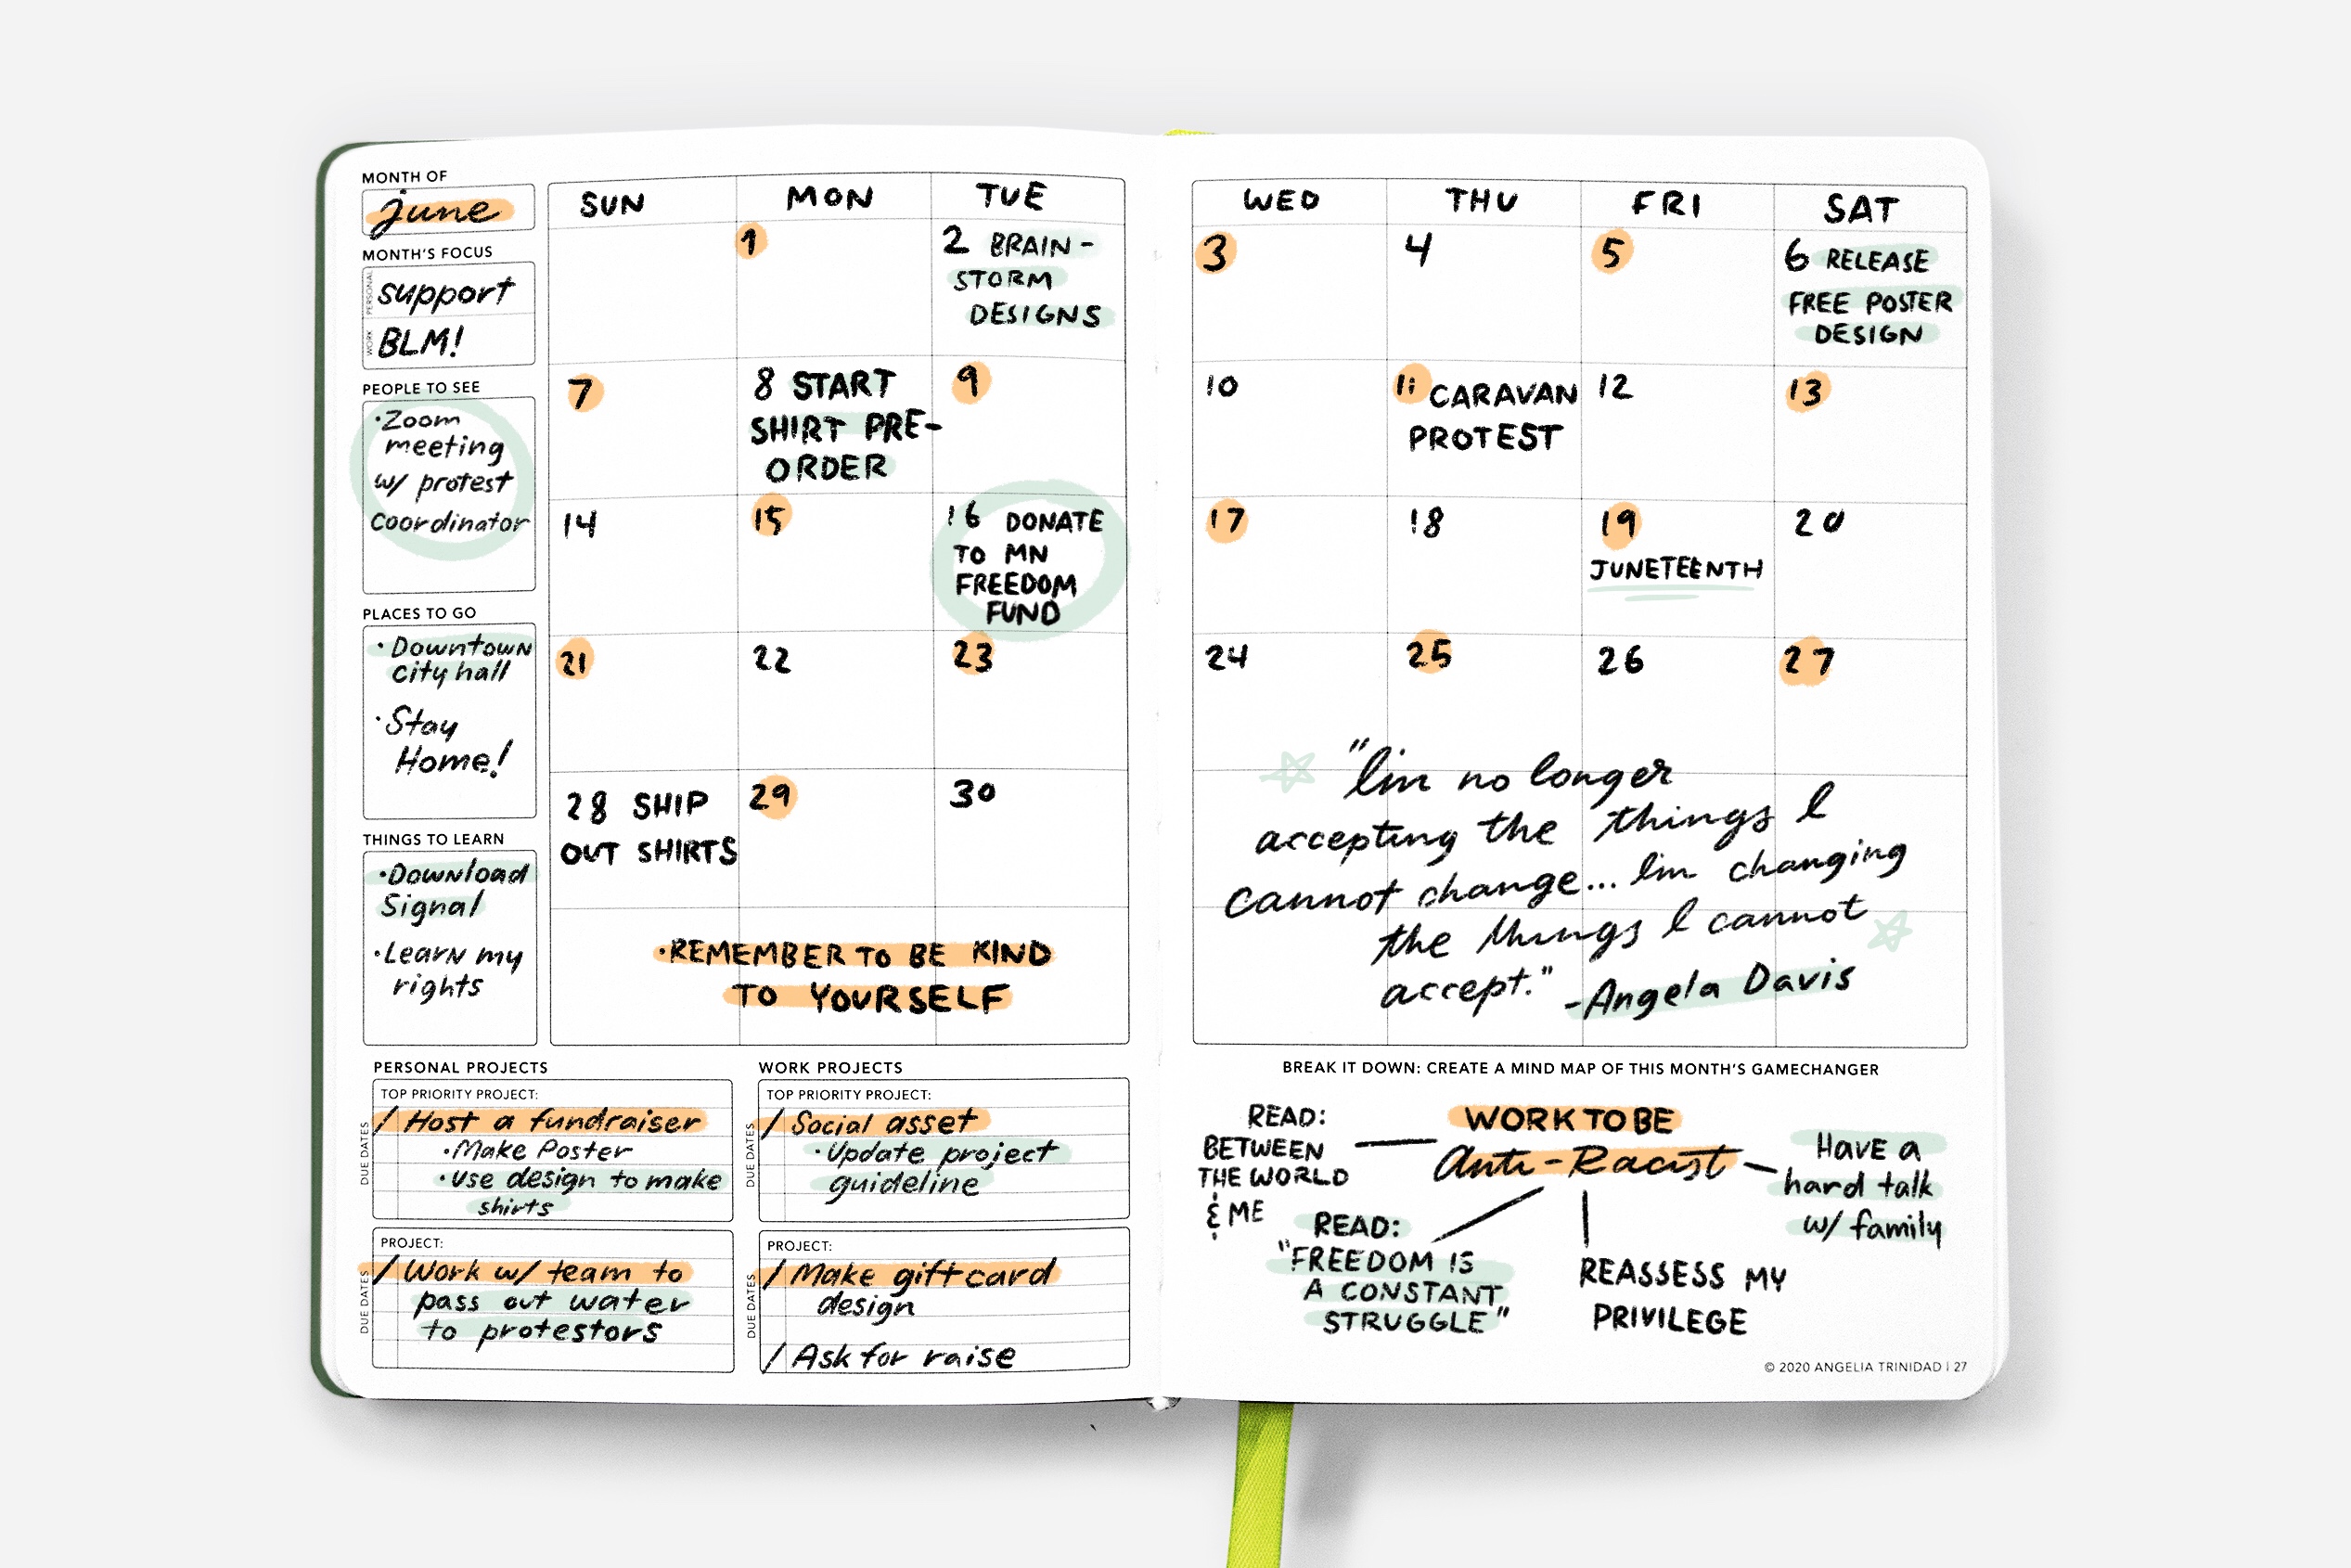 MONTH OF
june
MONTH'S FOCUS
PERSONAL
support
WORK
BLM!
PEOPLE TO SEE
•Zoom
meeting
w/ protest
coordinator
PLACES TO GO
• Downtown
city hall
• Stay
Home!
THINGS TO LEARN
•Download
Signal
•Learn my
rights
SUN MON TUE
1
2 BRAIN-
STORM
DESIGNS
7
8 START
SHIRT PRE-
ORDER
9
14
15
16 DONATE
TO MN
FREEDOM
FUND
21
22
23
28 SHIP
OUT SHIRTS
29
30
•REMEMBER TO BE KIND
TO YOURSELF
PERSONAL PROJECTS
TOP PRIORITY PROJECT:
DUE DATES
/ Host a fundraiser
•Make Poster
•use design to make
shirts
PROJECT:
DUE DATES
/ Work w/ team to
pass out water
to protestors
WORK PROJECTS
TOP PRIORITY PROJECT:
DUE DATES
/ Social asset
•Update project
guideline
PROJECT:
DUE DATES
/ Make gift card
design
/ Ask for raise
WED THU FRI SAT
3
4
5
6 RELEASE
FREE POSTER
DESIGN
10
11 CARAVAN
PROTEST
12
13
17
18
19
JUNETEENTH
20
24
25
26
27
"I'm no longer
accepting the things I
cannot change... I'm changing
the things I cannot
accept."
-Angela Davis
BREAK IT DOWN: CREATE A MIND MAP OF THIS MONTH'S GAMECHANGER
WORK TO BE
Anti-Racist
READ:
BETWEEN
THE WORLD
& ME
READ:
"FREEDOM IS
A CONSTANT
STRUGGLE"
REASSESS MY
PRIVILEGE
Have a
hard talk
w/ family
© 2020 ANGELIA TRINIDAD | 27